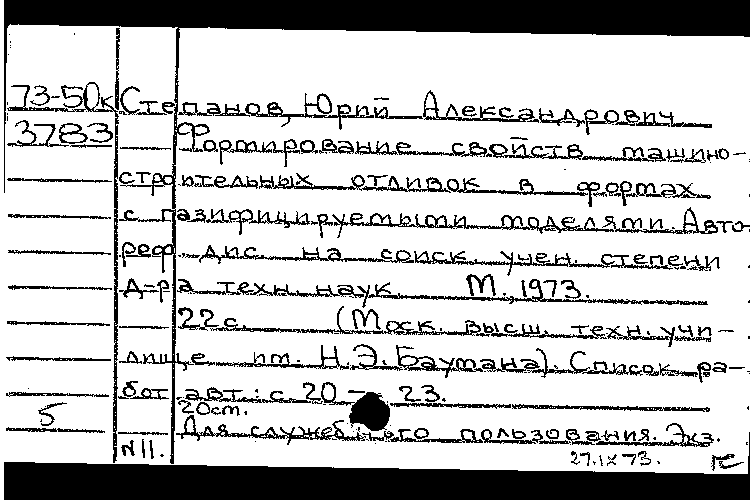 73-50к Степанов, Юрий Александрович
3783 Формирование свойств машино-
строительных отливок в формах
с газифицируемыми моделями. Авто-
реф. дис. на соиск. учен. степени
д-ра техн. наук. М., 1973.
22 с. (Моск. высш. техн. учи-
лище им. Н.Э. Баумана). Список ра-
бот авт.: с. 20 - 23.
20 cm.
5 Для служебного пользования. Экз.
N 11.
27.IX 73.